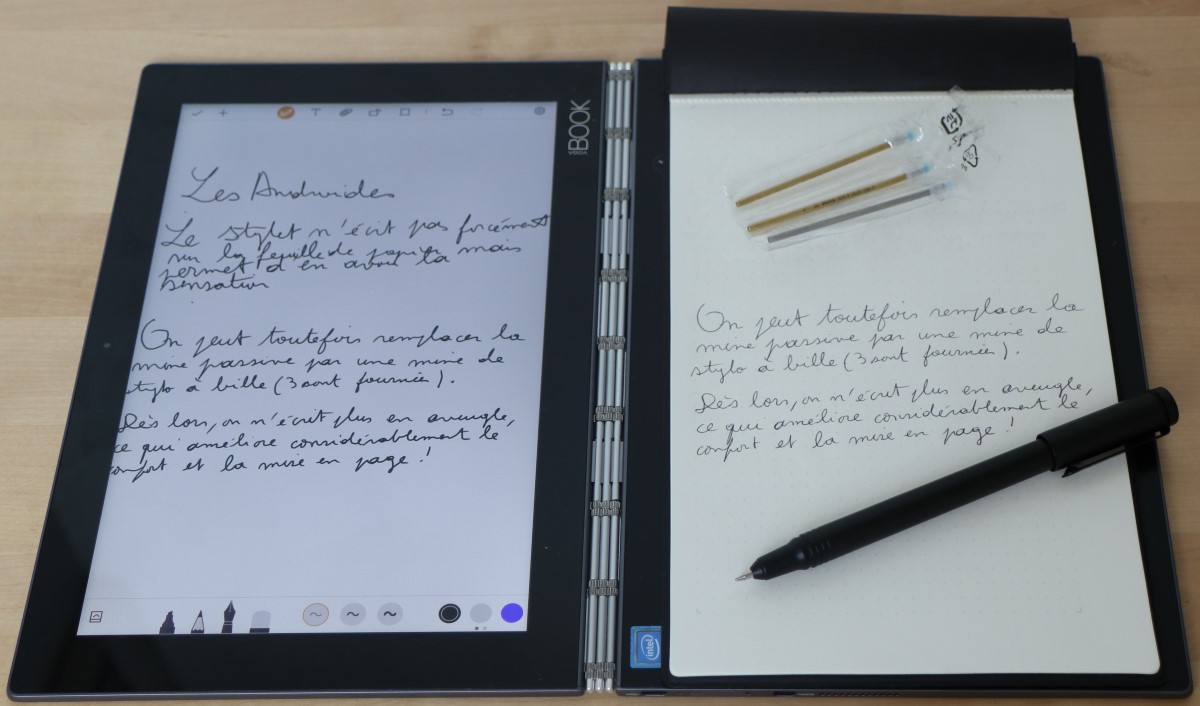 YOGA BOOK
Les Androides
Le stylet n'écrit pas forcément
sur la feuille de papier mais
permet d'en avoir la
sensation
On peut toutefois remplacer la
mine passive par une mine de
stylo à bille (3 sont fournies).
Dès lors, on n'écrit plus en aveugle,
ce qui améliore considérablement le
confort et la mise en page !
On peut toutefois remplacer la
mine passive par une mine de
stylo à bille (3 sont fournies).
Dès lors, on n'écrit plus en aveugle,
ce qui améliore considérablement le
confort et la mise en page !
intel